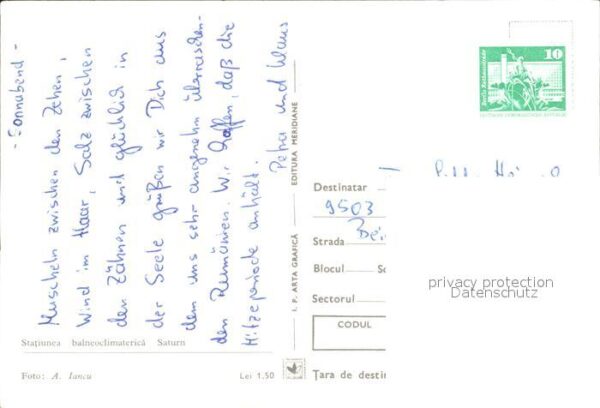 - Sonnabend -
Muscheln zwischen den Zehen,
Wind im Haar, Salz zwischen
den Zähnen und glücklich in
der Seele grüßen wir Dich aus
dem uns sehr angenehm überraschen-
den Rumänien. Wir hoffen, daß die
Hitzeperiode anhält.
Petra und Klaus
Stațiunea balneoclimaterică Saturn
Foto: A. Iancu
Lei 1,50
I. P. ARTA GRAFICĂ
EDITURA MERIDIANE
10
Destinatar
9503
Strada
Blocul
Sectorul
CODUL
Țara de destin
privacy protection
Datenschutz